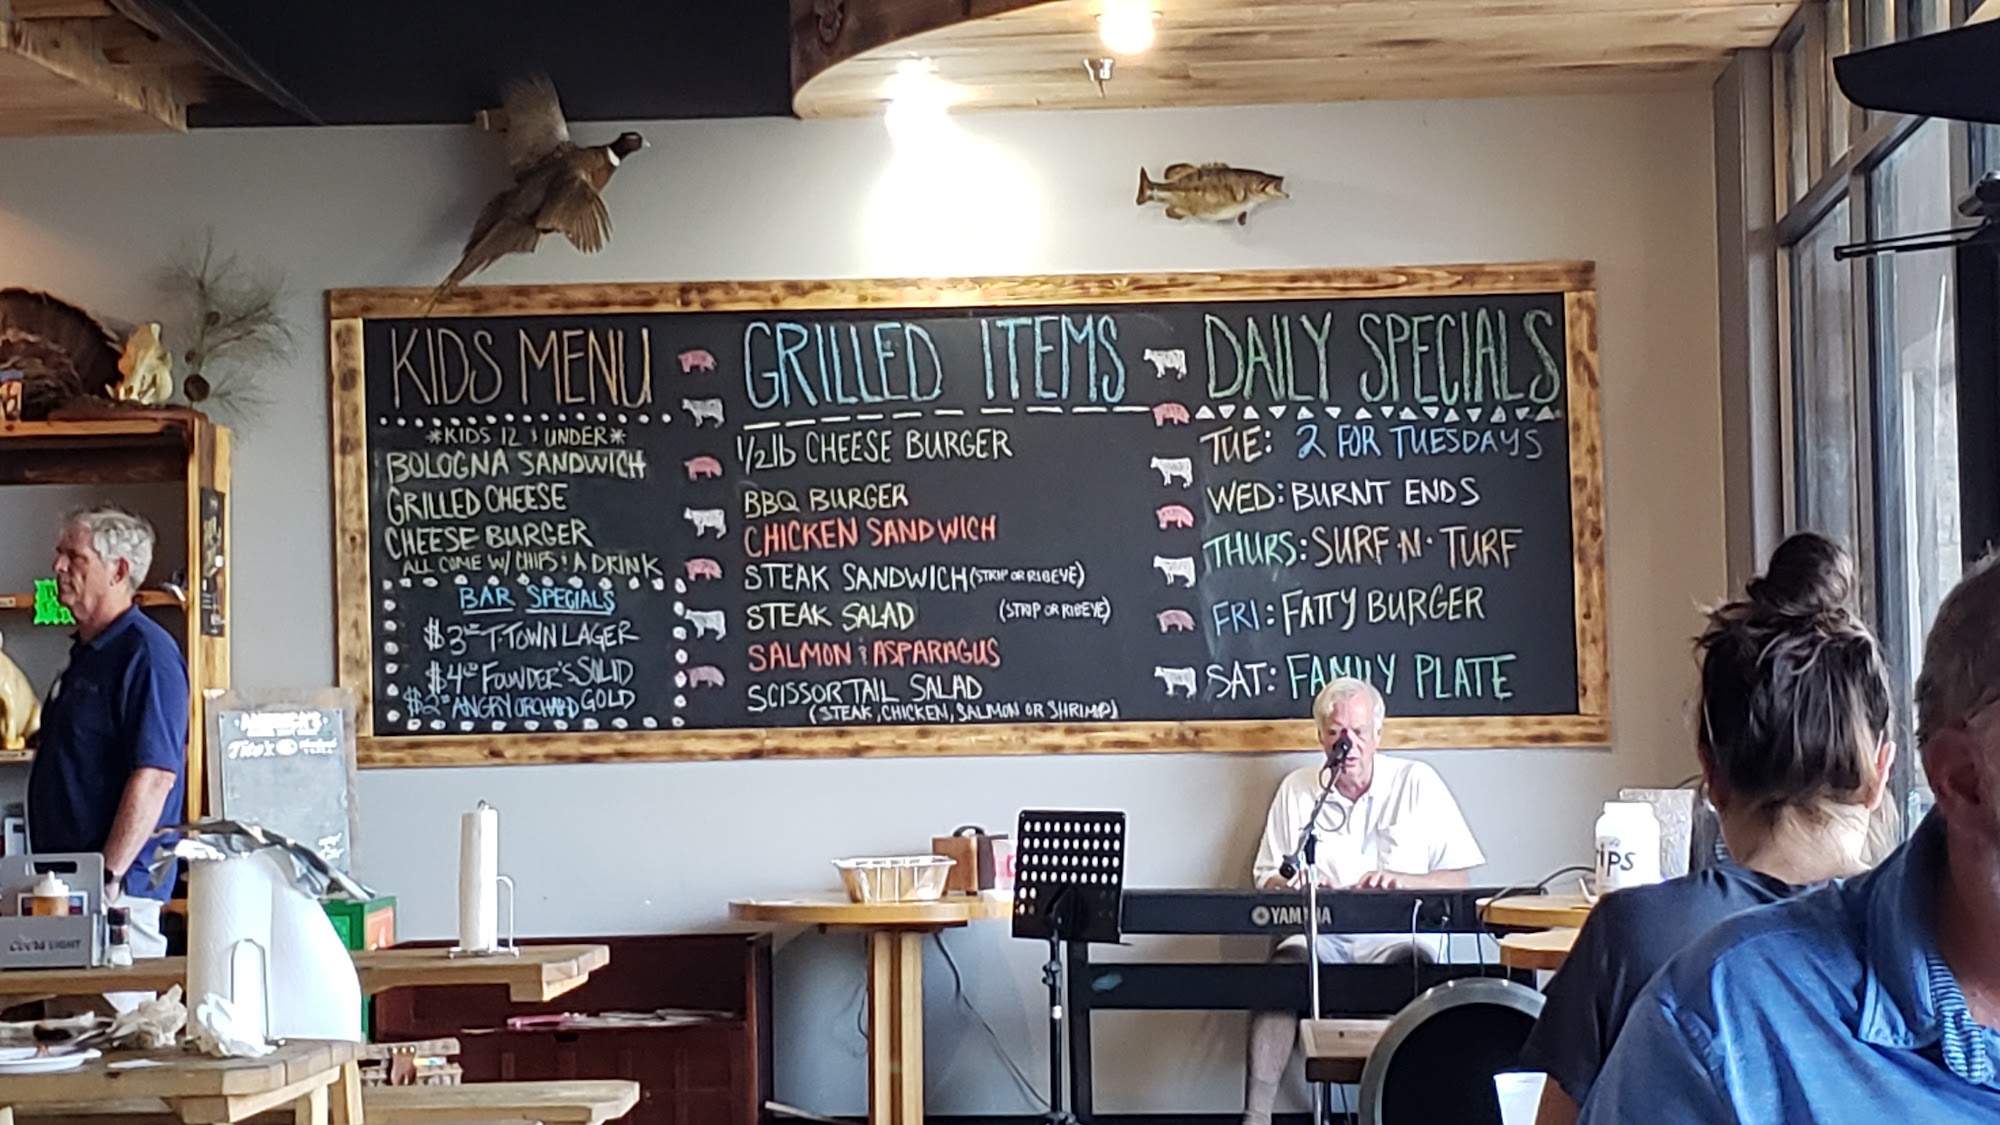 KIDS MENU
*KIDS 12 & UNDER*
BOLOGNA SANDWICH
GRILLED CHEESE
CHEESE BURGER
ALL COME W/ CHIPS & A DRINK
BAR SPECIALS
$3 T-TOWN LAGER
$4 FOUNDER'S SOLID GOLD
$2 ANGRY ORCHARD
GRILLED ITEMS
1/2lb CHEESE BURGER
BBQ BURGER
CHICKEN SANDWICH
STEAK SANDWICH (STRIP OR RIBEYE)
STEAK SALAD (STRIP OR RIBEYE)
SALMON & ASPARAGUS
SCISSORTAIL SALAD
(STEAK, CHICKEN, SALMON OR SHRIMP)
DAILY SPECIALS
TUE: 2 FOR TUESDAYS
WED: BURNT ENDS
THURS: SURF·N·TURF
FRI: FATTY BURGER
SAT: FAMILY PLATE
Tito's
COORS LIGHT
YAMAHA
TIPS